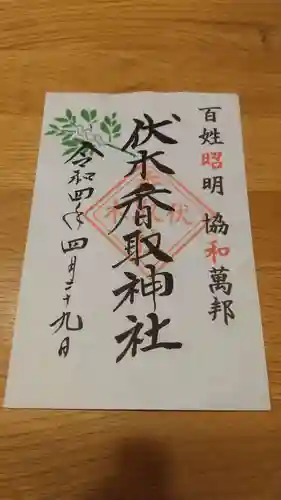 百姓昭明協和萬邦
伏木香取神社
令和四年四月二十九日